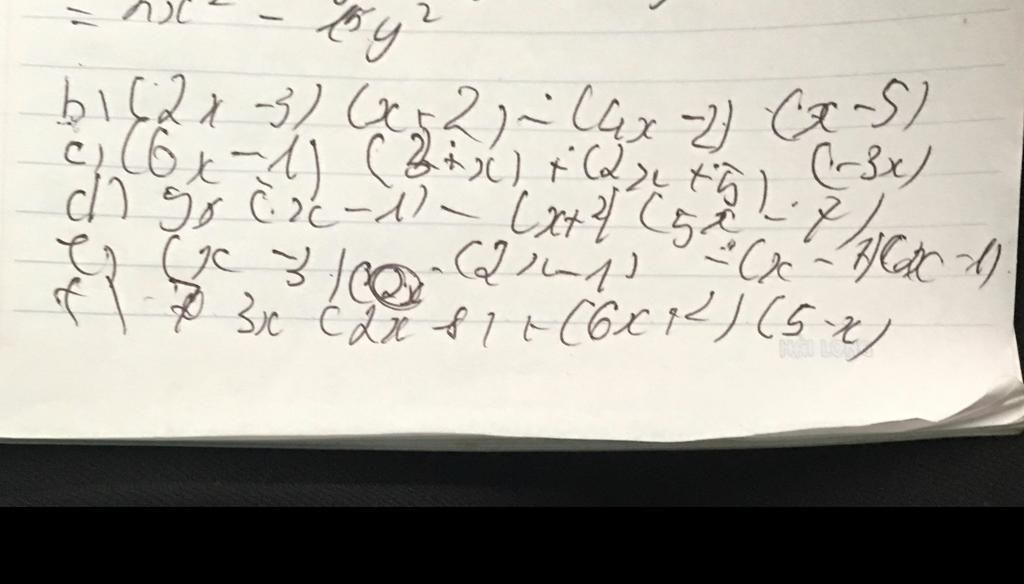 = x² - 15y²
b) (2x - 3) (x + 2) - (4x - 2) (x - 5)
c) (6x - 1) (3 + x) + (2x + 5) (-3x)
d) 9x (x - 1) - (x + 2) (5x - 7)
e) (x - 3) (2x - 1) - (x - 7)(2x - 1)
f) 3x (2x - 8) + (6x + 2) (5 - x)
HẢI LONG